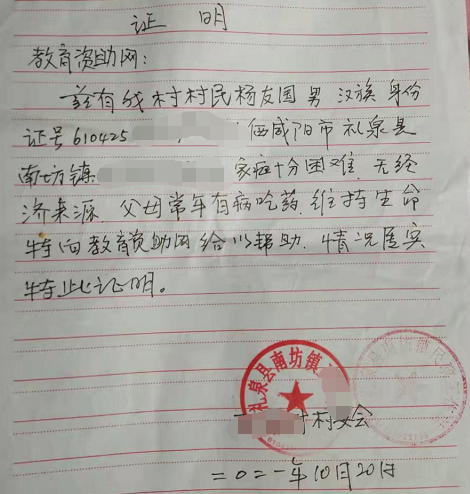 证 明
教育资助网：
兹有我村村民杨友国 男 汉族 身份
证号610425 陕西咸阳市礼泉县
南坊镇 家庭十分困难 无经
济来源、父母常年有病吃药、维持生命
特向教育资助网给以帮助、情况属实
特此证明。
礼泉县南坊镇
村委会
二〇二一年10月20日